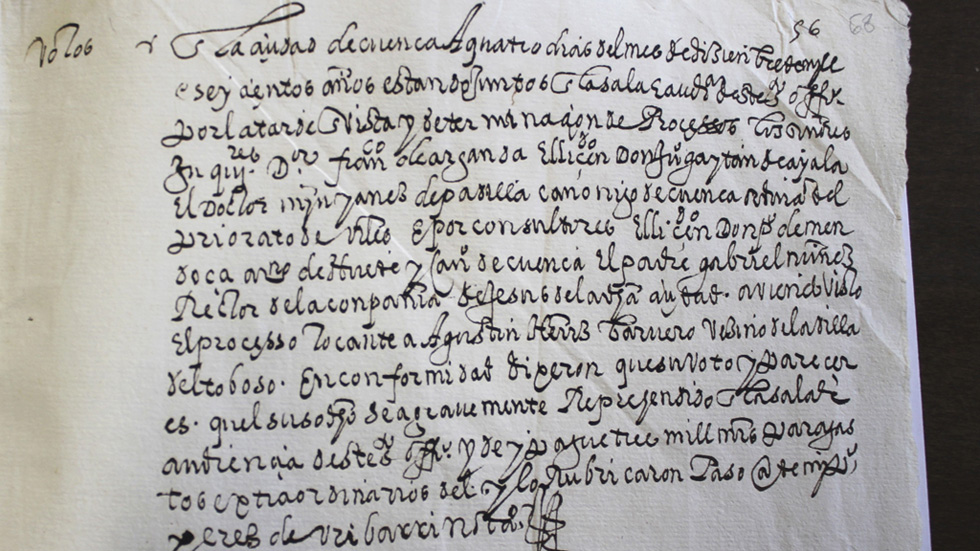 56 68
Votos En la ciudad de cuenca A quatro dias del mes de dizienbre de mill
e seycientos años estando juntos En la sala E audia deste sto offio
por la tarde En Vista y determinaçion de Processos los señores
Inquisres Dor franco de arganda El licendo Don Jua gaytan de ayala
El Doctor myn yanez de padilla canonigo de cuenca ordinario del
priorato de Ucles E por consultores El licendo Don po de men
doca de Huete y Cano de cuenca El padre gabriel nuñez
Rector de la conpañia de Jesus de la dha ciudad. aviendo Visto
El processo tocante a Agustin Herrz Vezino de la villa
del toboso. En conformidad dixeron que su Voto y parecer
es. quel susodho sea gravemente Reprehendido En la sala de
audiencia deste sto offio. y pague tres mill mrs para gas
tos extraordinarios del. y lo Rubricaron Paso Ante mi po
perez de Uribarri noto